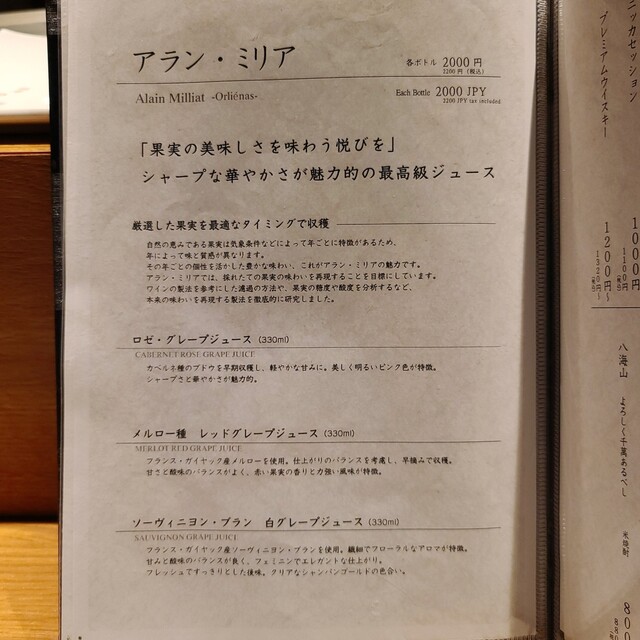 アラン・ミリア
各ボトル 2000 円
2200 円（税込）
Alain Milliat -Orliénas-
Each Bottle 2000 JPY
2200 JPY tax included
「果実の美味しさを味わう悦びを」
シャープな華やかさが魅力的の最高級ジュース
厳選した果実を最適なタイミングで収穫
自然の恵みである果実は気象条件などによって年ごとに特徴があるため、
年によって味と質感が異なります。
その年ごとの個性を活かした豊かな味わい、これがアラン・ミリアの魅力です。
アラン・ミリアでは、採れたての果実の味わいを再現することを目標にしています。
ワインの製法を参考にした濾過の方法や、果実の糖度や酸度を分析するなど、
本来の味わいを再現する製法を徹底的に研究しました。
ロゼ・グレープジュース（330ml）
CABERNET ROSE GRAPE JUICE
カベルネ種のブドウを早期収穫し、軽やかな甘みに。美しく明るいピンク色が特徴。
シャープさと華やかさが魅力的。
メルロー種 レッドグレープジュース（330ml）
MERLOT RED GRAPE JUICE
フランス・ガイヤック産メルローを使用。仕上がりのバランスを考慮し、早摘みで収穫。
甘さと酸味のバランスがよく、赤い果実の香りと力強い風味が特徴。
ソーヴィニヨン・ブラン 白グレープジュース（330ml）
SAUVIGNON GRAPE JUICE
フランス・ガイヤック産ソーヴィニヨン・ブランを使用。繊細でフローラルなアロマが特徴。
甘みと酸味のバランスが良く、フェミニンでエレガントな仕上がり。
フレッシュですっきりとした後味。クリアなシャンパンゴールドの色合い。
ニッカセッション
1000円
1100円（税込）
プレミアムウイスキー
1200円～
1320円～（税込）
八海山 よろしく千萬あるべし 米焼酎